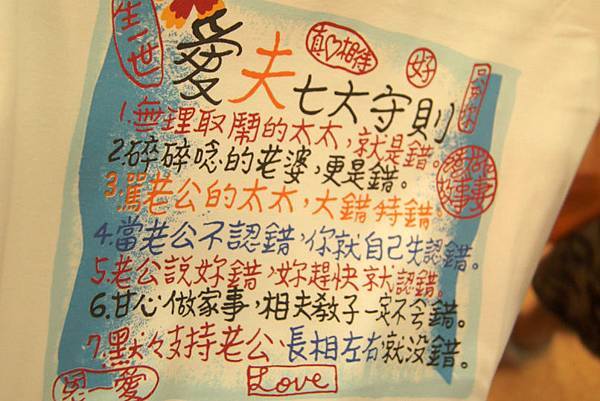 生一世
真心相待
好
愛夫七大守則
1.無理取鬧的太太,就是錯。
2.碎碎唸的老婆,更是錯。
3.罵老公的太太,大錯特錯。
4.當老公不認錯,你就自己先認錯。
5.老公說妳錯,妳趕快就認錯。
6.甘心做家事,相夫教子一定不會錯。
7.默々支持老公,長相左右就沒錯。
恩愛
Love